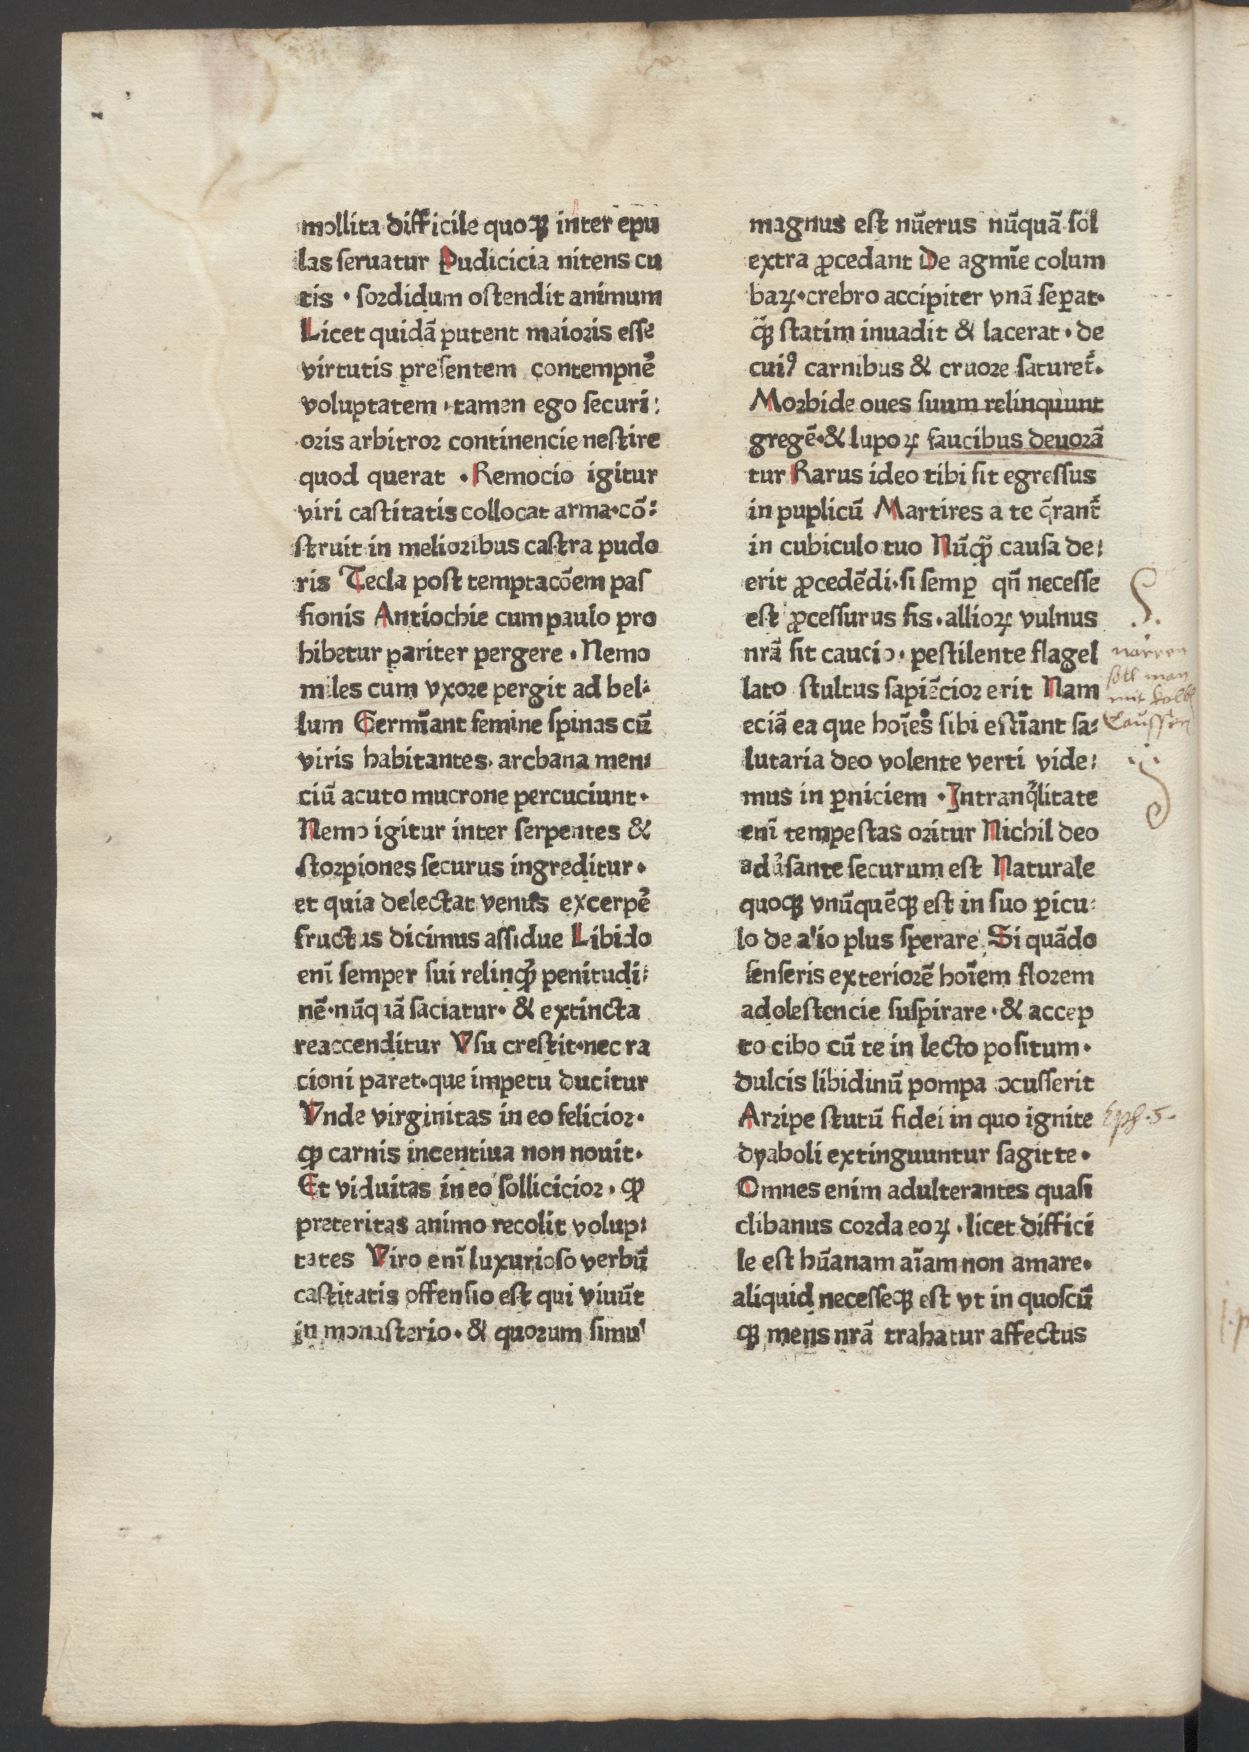 mollita difficile quoqꝫ inter epu
las seruatur Pudicicia nitens cu
tis · sordidum ostendit animum
Licet quidā putent maioris esse
virtutis presentem contempnē
voluptatem · tamen ego securi:
oris arbitror continencie nestire
quod querat · Remocio igitur
viri castitatis collocat arma · cō:
struit in melioribus castra pudo
ris Tecla post temptacōem pas
sionis Antiochie cum paulo pro
hibetur pariter pergere · Nemo
miles cum vxore pergit ad bel:
lum Germīant femine spinas cū
viris habitantes · archana men:
ciū acuto mucrone percuciunt ·
Nemo igitur inter serpentes &
storpiones securus ingreditur ·
et quia delectat venus excerpē
fructus dicimus assidue Libido
enī semper sui relinqꝫ penitudi:
nē · nūquā saciatur · & extincta
reaccenditur Vsu crestit · nec ra
cioni paret · que impetu ducitur
Vnde virginitas in eo felicior ·
ꝙ carnis incentiua non nouit ·
Et viduitas in eo sollicicior · ꝙ
preteritas animo recolit volup:
tates Viro enī luxurioso verbū
castitatis offensio est qui viuūt
in monasterio · & quorum simul
magnus est nūerus nūquā sol
extra ꝓcedant De agmīe colum
baꝝ · crebro accipiter vnā seꝑat ·
qͣꝫ statim inuadit & lacerat · de
cuiꝰ carnibus & cruore saturet᷑ ·
Morbide oues suum relinquunt
gregē · & lupoꝝ faucibus deuorā
tur Rarus ideo tibi sit egressus
in puplicū Martires a te q̄rant᷑
in cubiculo tuo Nūqͣꝫ causa de:
erit ꝓcedēdi · si semꝑ qn̄ necesse
est ꝓcessurus sis · allioꝝ vulnus
nrā sit caucio · pestilente flagel
lato stultus sapiēcior erit Nam
eciā ea que hoīes sibi estīant sa:
lutaria deo volente verti vide:
mus in ꝑniciem · Intranqͥlitate
enī tempestas oritur Nichil deo
adúsante securum est Naturale
quoqꝫ vnūquēqꝫ est in suo ꝑicu:
lo de a'io plus sperare Si quādo
senseris exteriorē hoīem florem
adolestencie suspirare · & accep
to cibo cū te in lecto positum ·
dulcis libidinū pompa ↄcusserit
Arripe stutū fidei in quo ignite
dyaboli extinguuntur sagitte ·
Omnes enim adulterantes quasi
clibanus corda eoꝝ · licet diffici
le est hūanam aīam non amare ·
aliquid necesseqꝫ est vt in quoscū
qꝫ mens nrā trahatur affectus
narren
soll man
mit kolb
Laussen
Eph. 5.